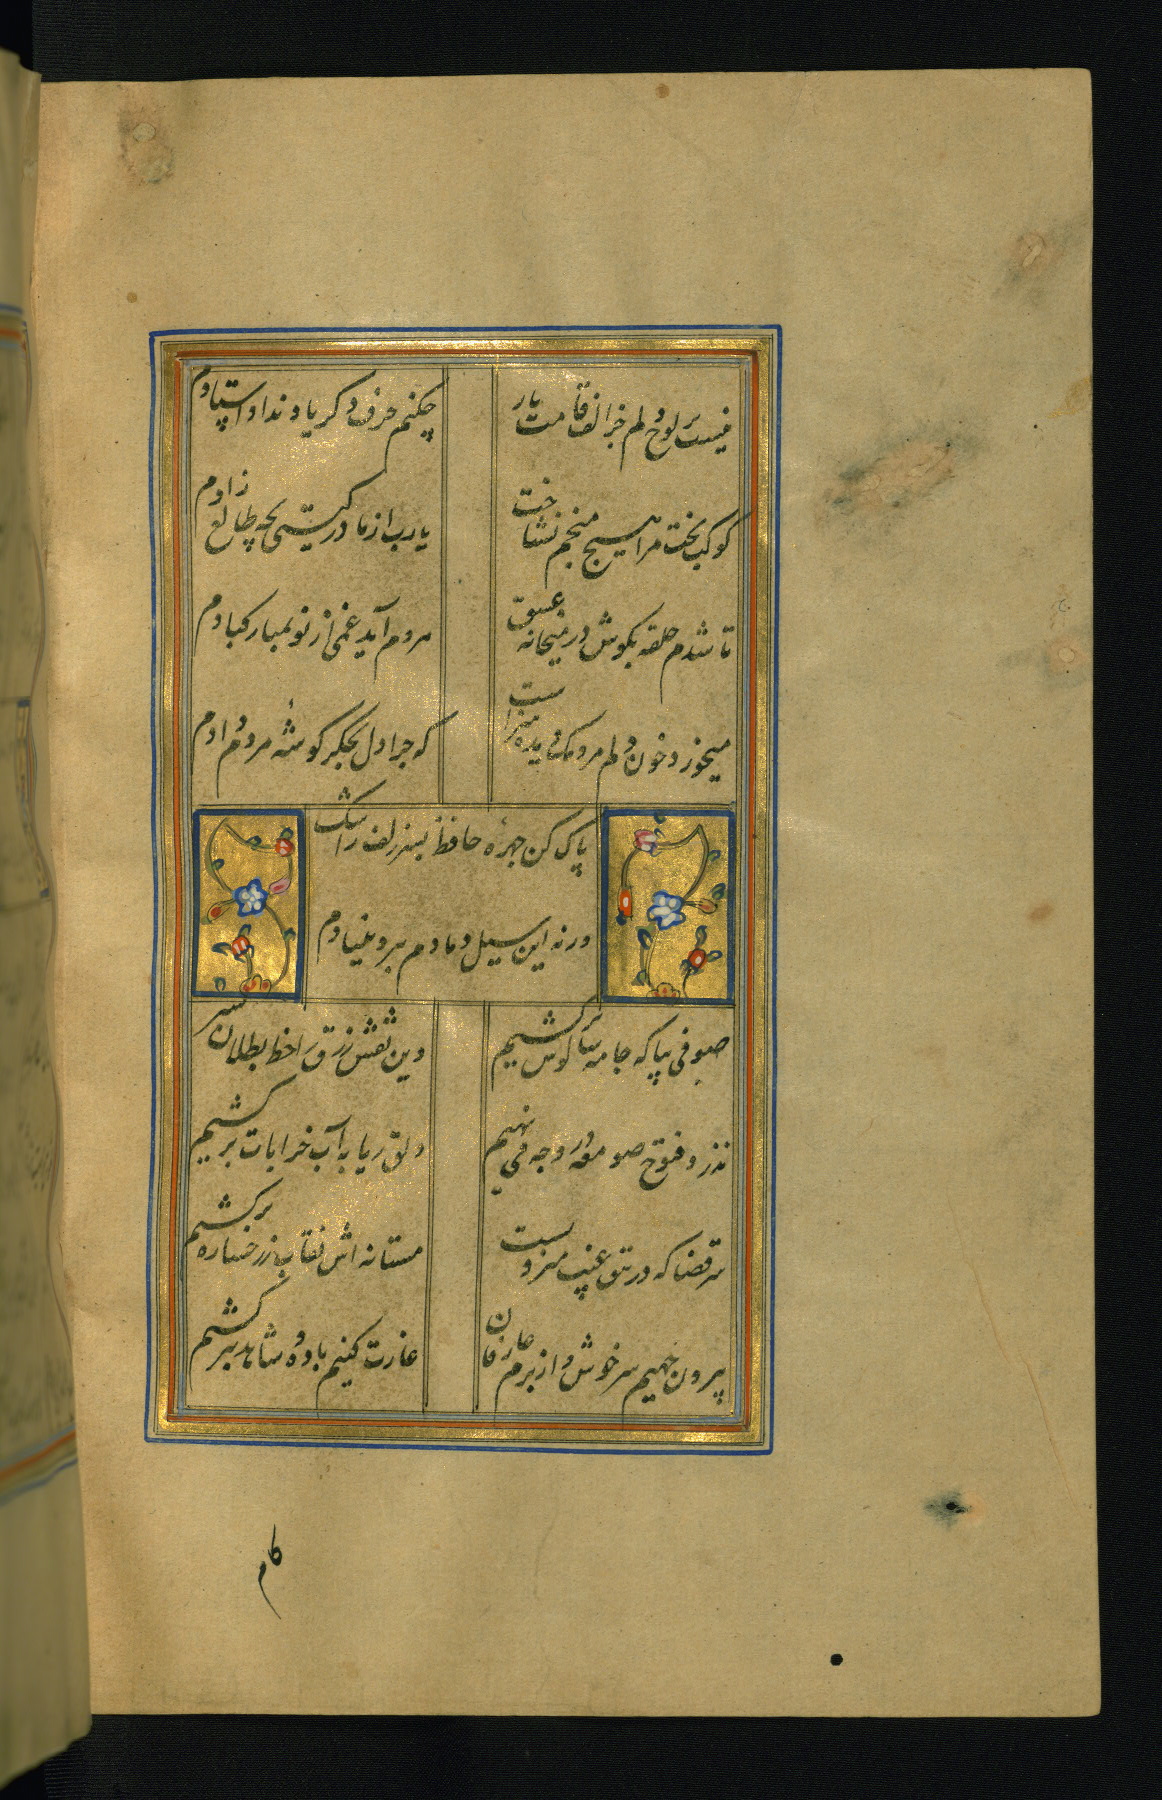 نیست بر لوح دلم جز الف قامت یار
چکنم حرف دکر یاد نداد استادم
کوکب بخت مرا هیچ منجم نشناخت
یارب از مادر کیتی بچه طالع زادم
تا شدم حلقه بکوش در میخانه عشق
هر دم آید غمی از نو بمبارکبادم
میخورد خون دلم مردمک دیده سزاست
که چرا دل بجکر کوشه مردم دادم
پاک کن چهره حافظ بسر زلف ز اشک
ورنه این سیل دمادم ببرد بنیادم
صوفی بیا که جامه سالوس برکشیم
وین نقش زرق را خط بطلان بسر کشیم
نذر و فتوح صومعه در وجه می نهیم
دلق ریا به آب خرابات برکشیم
سر قضا که در تتق غیب منزویست
مستانه اش نقاب ز رخساره برکشیم
بیرون جهیم سرخوش و از بزم عارفان
غارت کنیم باده و شاهد ببر کشیم
کام